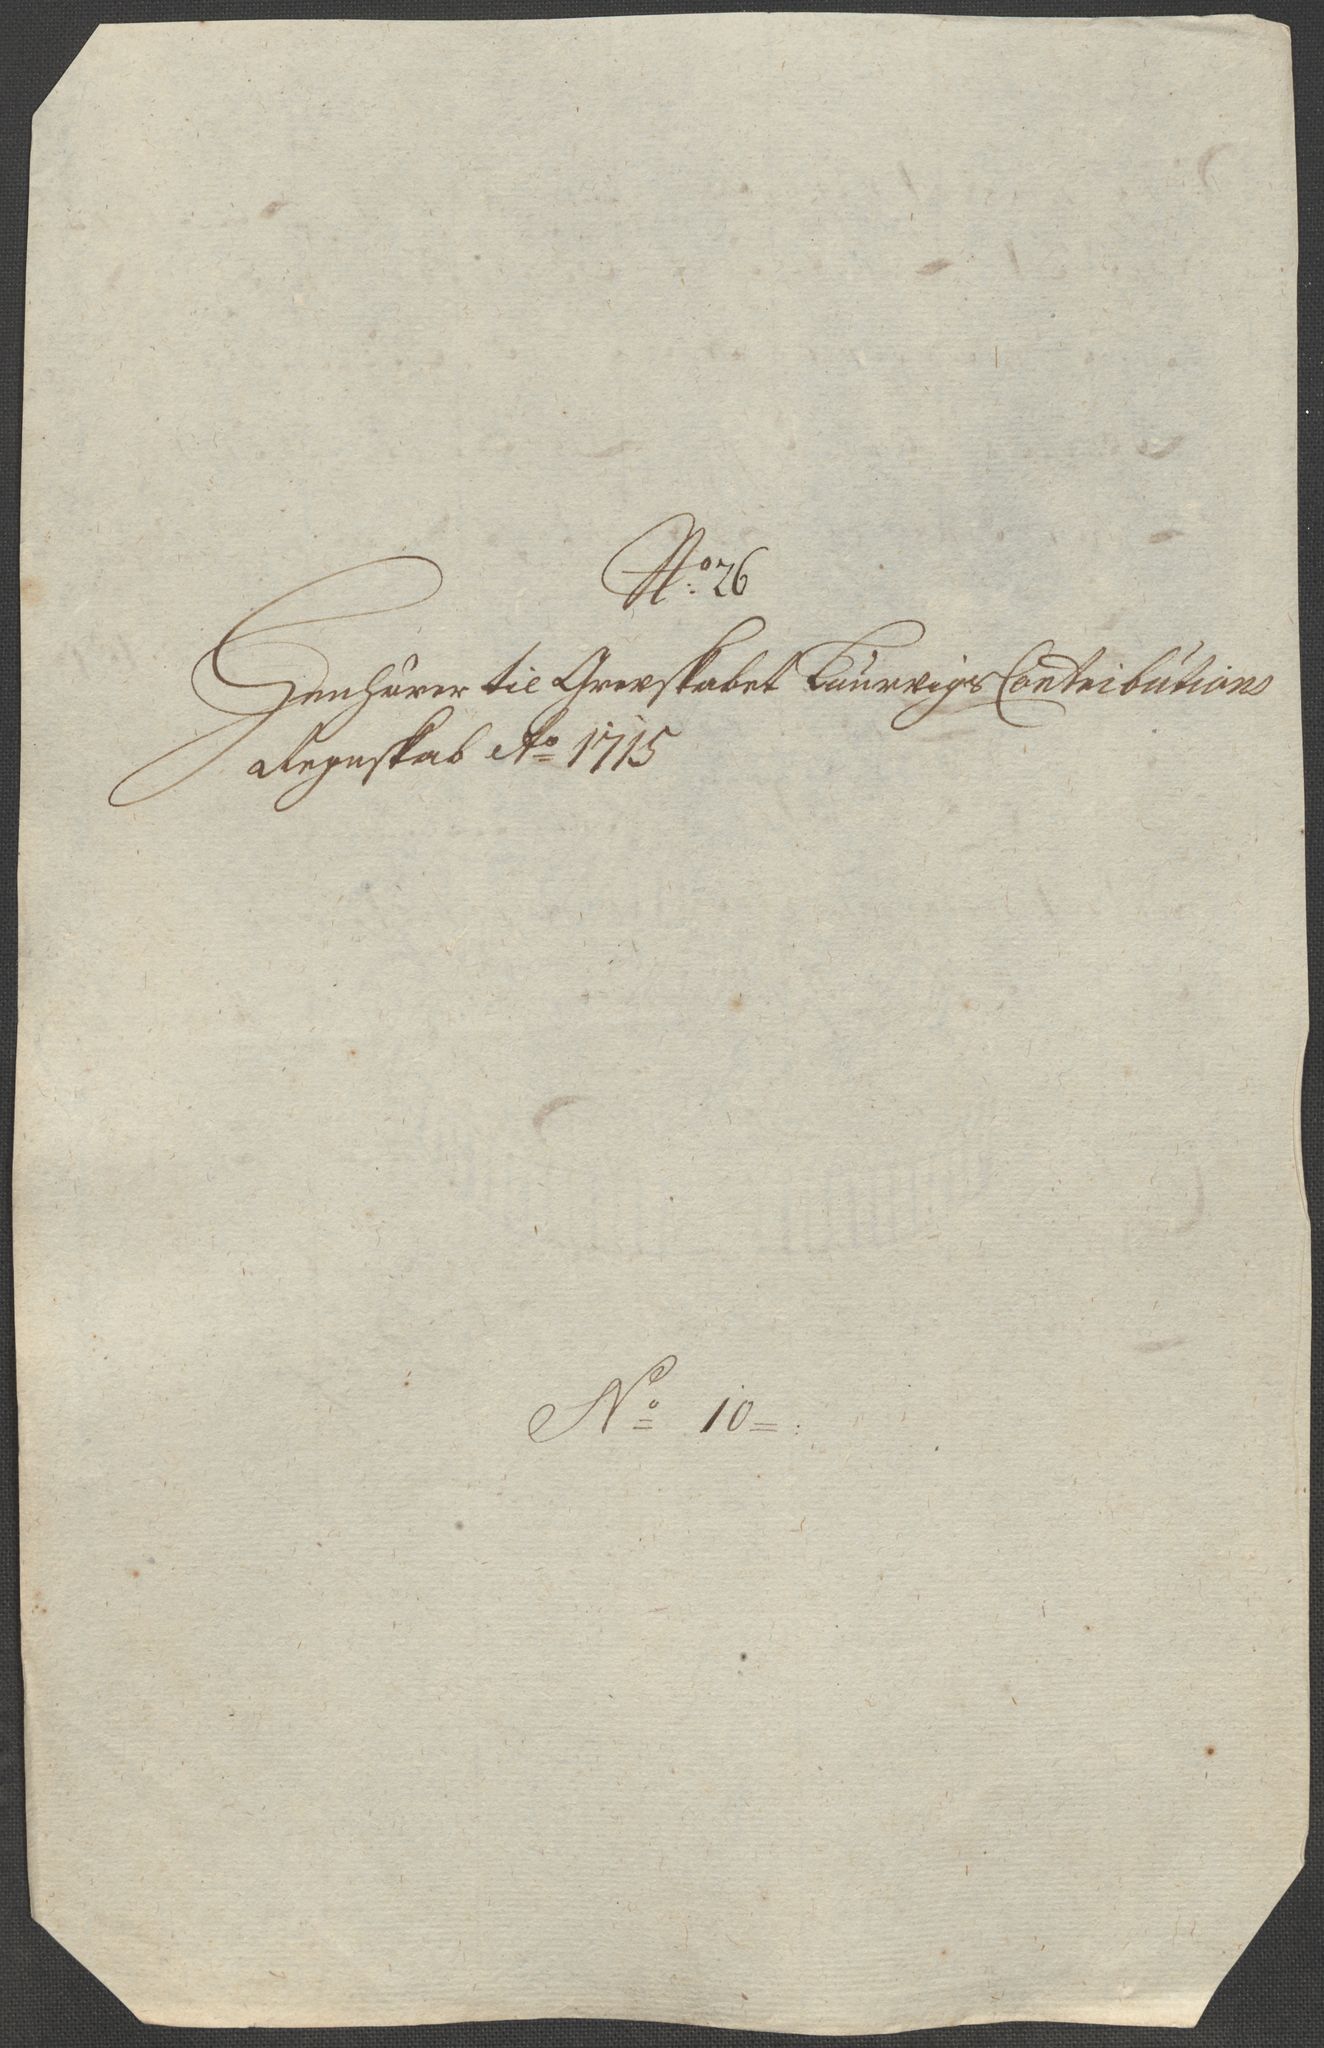 No: 26
Henhörer til Grevskabet Laurvigs Contributions
Regnskab Ao 1715
No 10